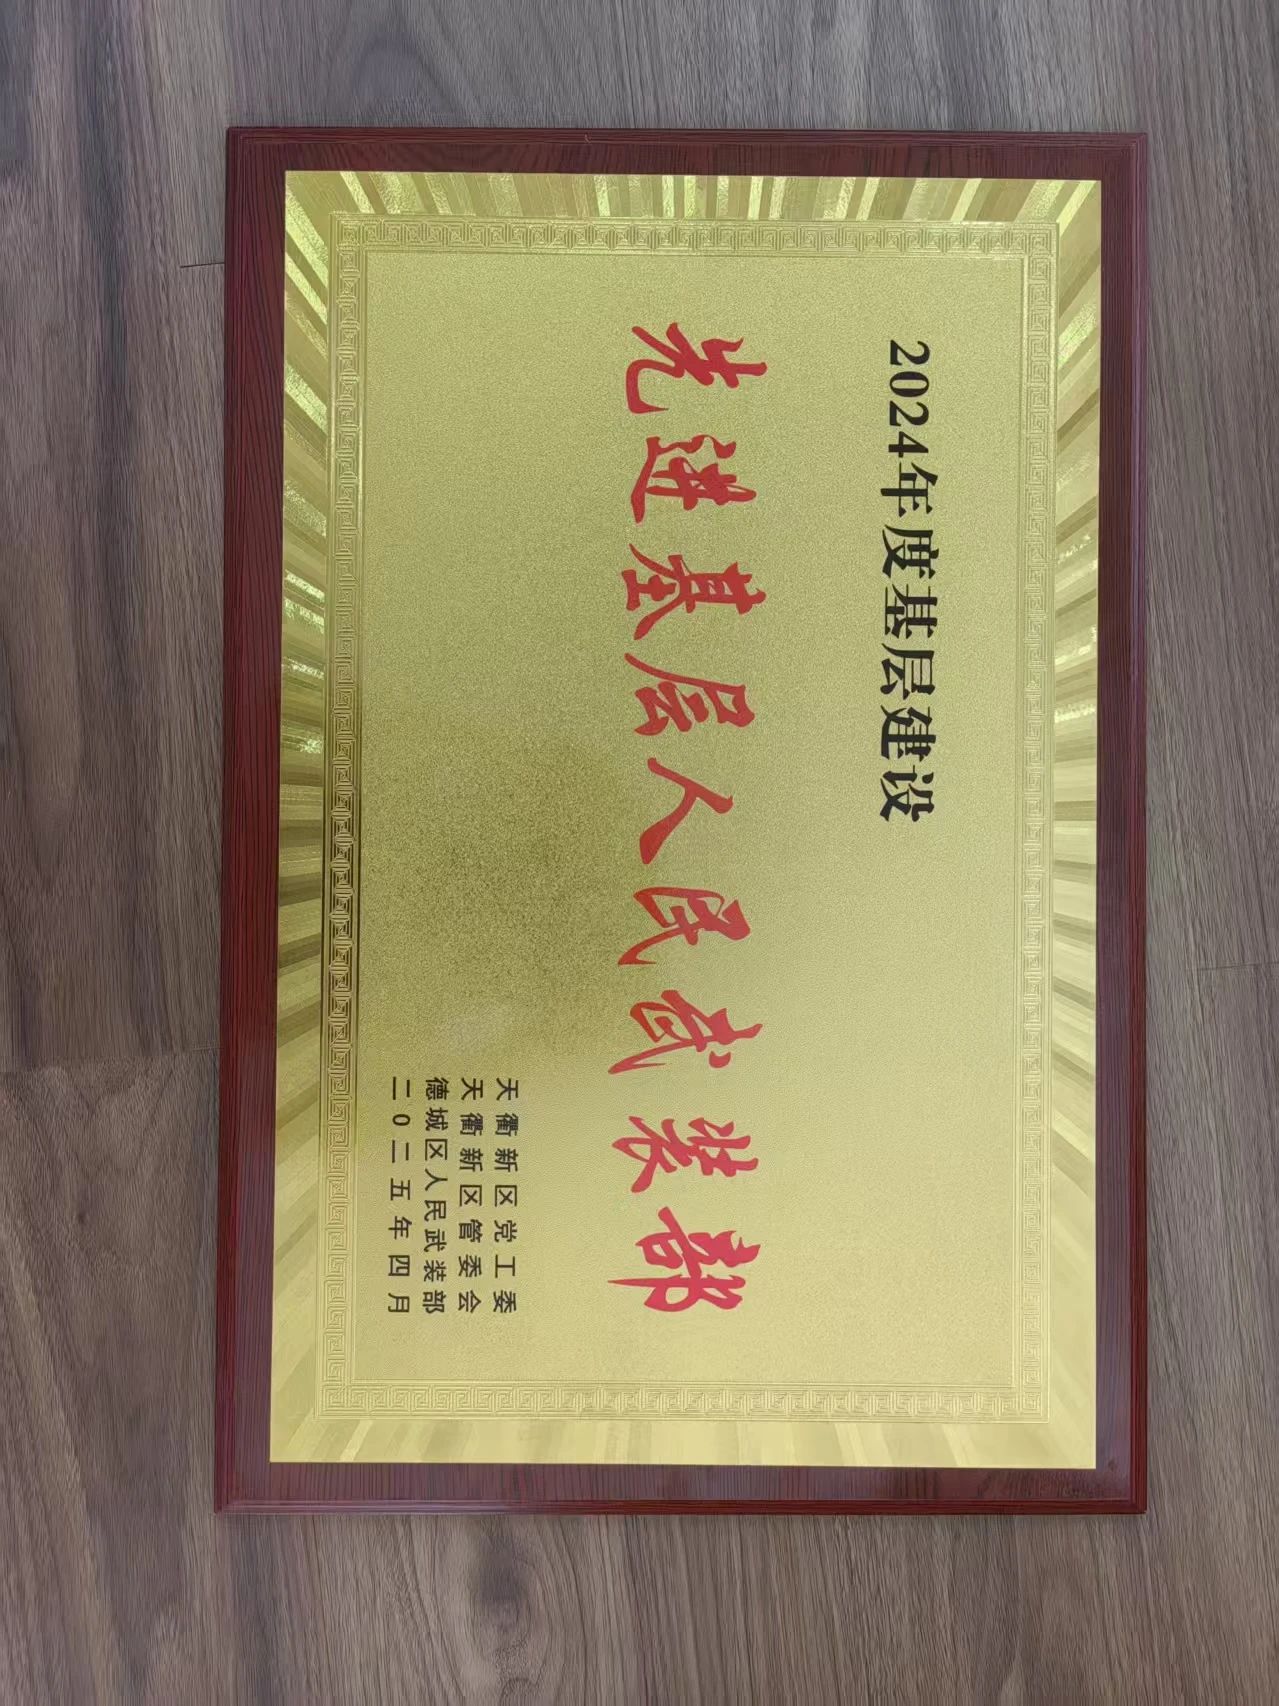 2024年度基层建设
先进基层人民武装部
天衢新区党工委
天衢新区管委会
德城区人民武装部
二0二五年四月